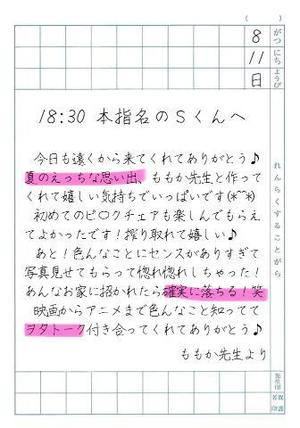 ( )
8 がつ
11 にち
日 ようび
れんらくすることがら
18:30 本指名のSくんへ
今日も遠くから来てくれてありがとう♪
夏のえっちな思い出、ももか先生と作って
くれて嬉しい気持ちでいっぱいです(*^^*)
初めてのピ〇クチェアも楽しんでもらえ
てよかったです！搾り取れて嬉しい♪
あと！色んなことにセンスがありすぎて
写真見せてもらって惚れ惚れしちゃった！
あんなお家に招かれたら確実に落ちる！笑
映画からアニメまで色んなこと知ってて
ヲタトーク付き合ってくれてありがとう♪
ももか先生より